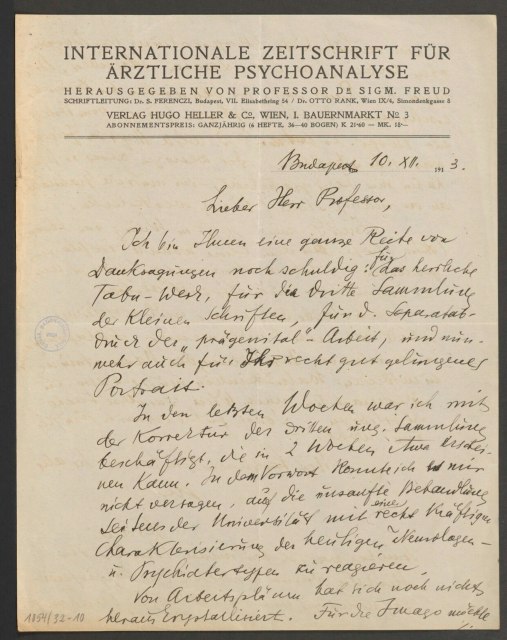 INTERNATIONALE ZEITSCHRIFT FÜR
ÄRZTLICHE PSYCHOANALYSE
HERAUSGEGEBEN VON PROFESSOR DR SIGM. FREUD
SCHRIFTLEITUNG: Dr. S. FERENCZI, Budapest, VII. Elisabethring 54 / Dr. OTTO RANK, Wien IX/4, Simondenkgasse 8
VERLAG HUGO HELLER & Co, WIEN, I. BAUERNMARKT No 3
ABONNEMENTSPREIS: GANZJÄHRIG (6 HEFTE, 36—40 BOGEN) K 21·60 = MK. 18·—
Budapest 10. XII. 1913.
Lieber Herr Professor,
Ich bin Ihnen eine ganze Reihe von
Danksagungen noch schuldig: für das herrliche
Tabu-Werk, für die dritte Sammlung
der Kleinen Schriften, für d. Separatab-
druck der „prägenital"-Arbeit, und nun-
mehr auch für Ihr recht gut gelungenes
Portrait.
In den letzten Wochen war ich mit
der Korrektur der dritten ung. Sammlung
beschäftigt, die in 2 Wochen etwa erschei-
nen kann. In dem Vorwort konnte ich mir
nicht versagen, auf die unsanfte Behandlung
seitens der Universität mit einer recht kräftigen
Charakterisierung der heutigen Neurologen-
u. Psychiatertypen zu reagieren.
Von Arbeitsplänen hat sich noch nichts
herauskrystallisiert. Für die Imago möchte
1054/32-10